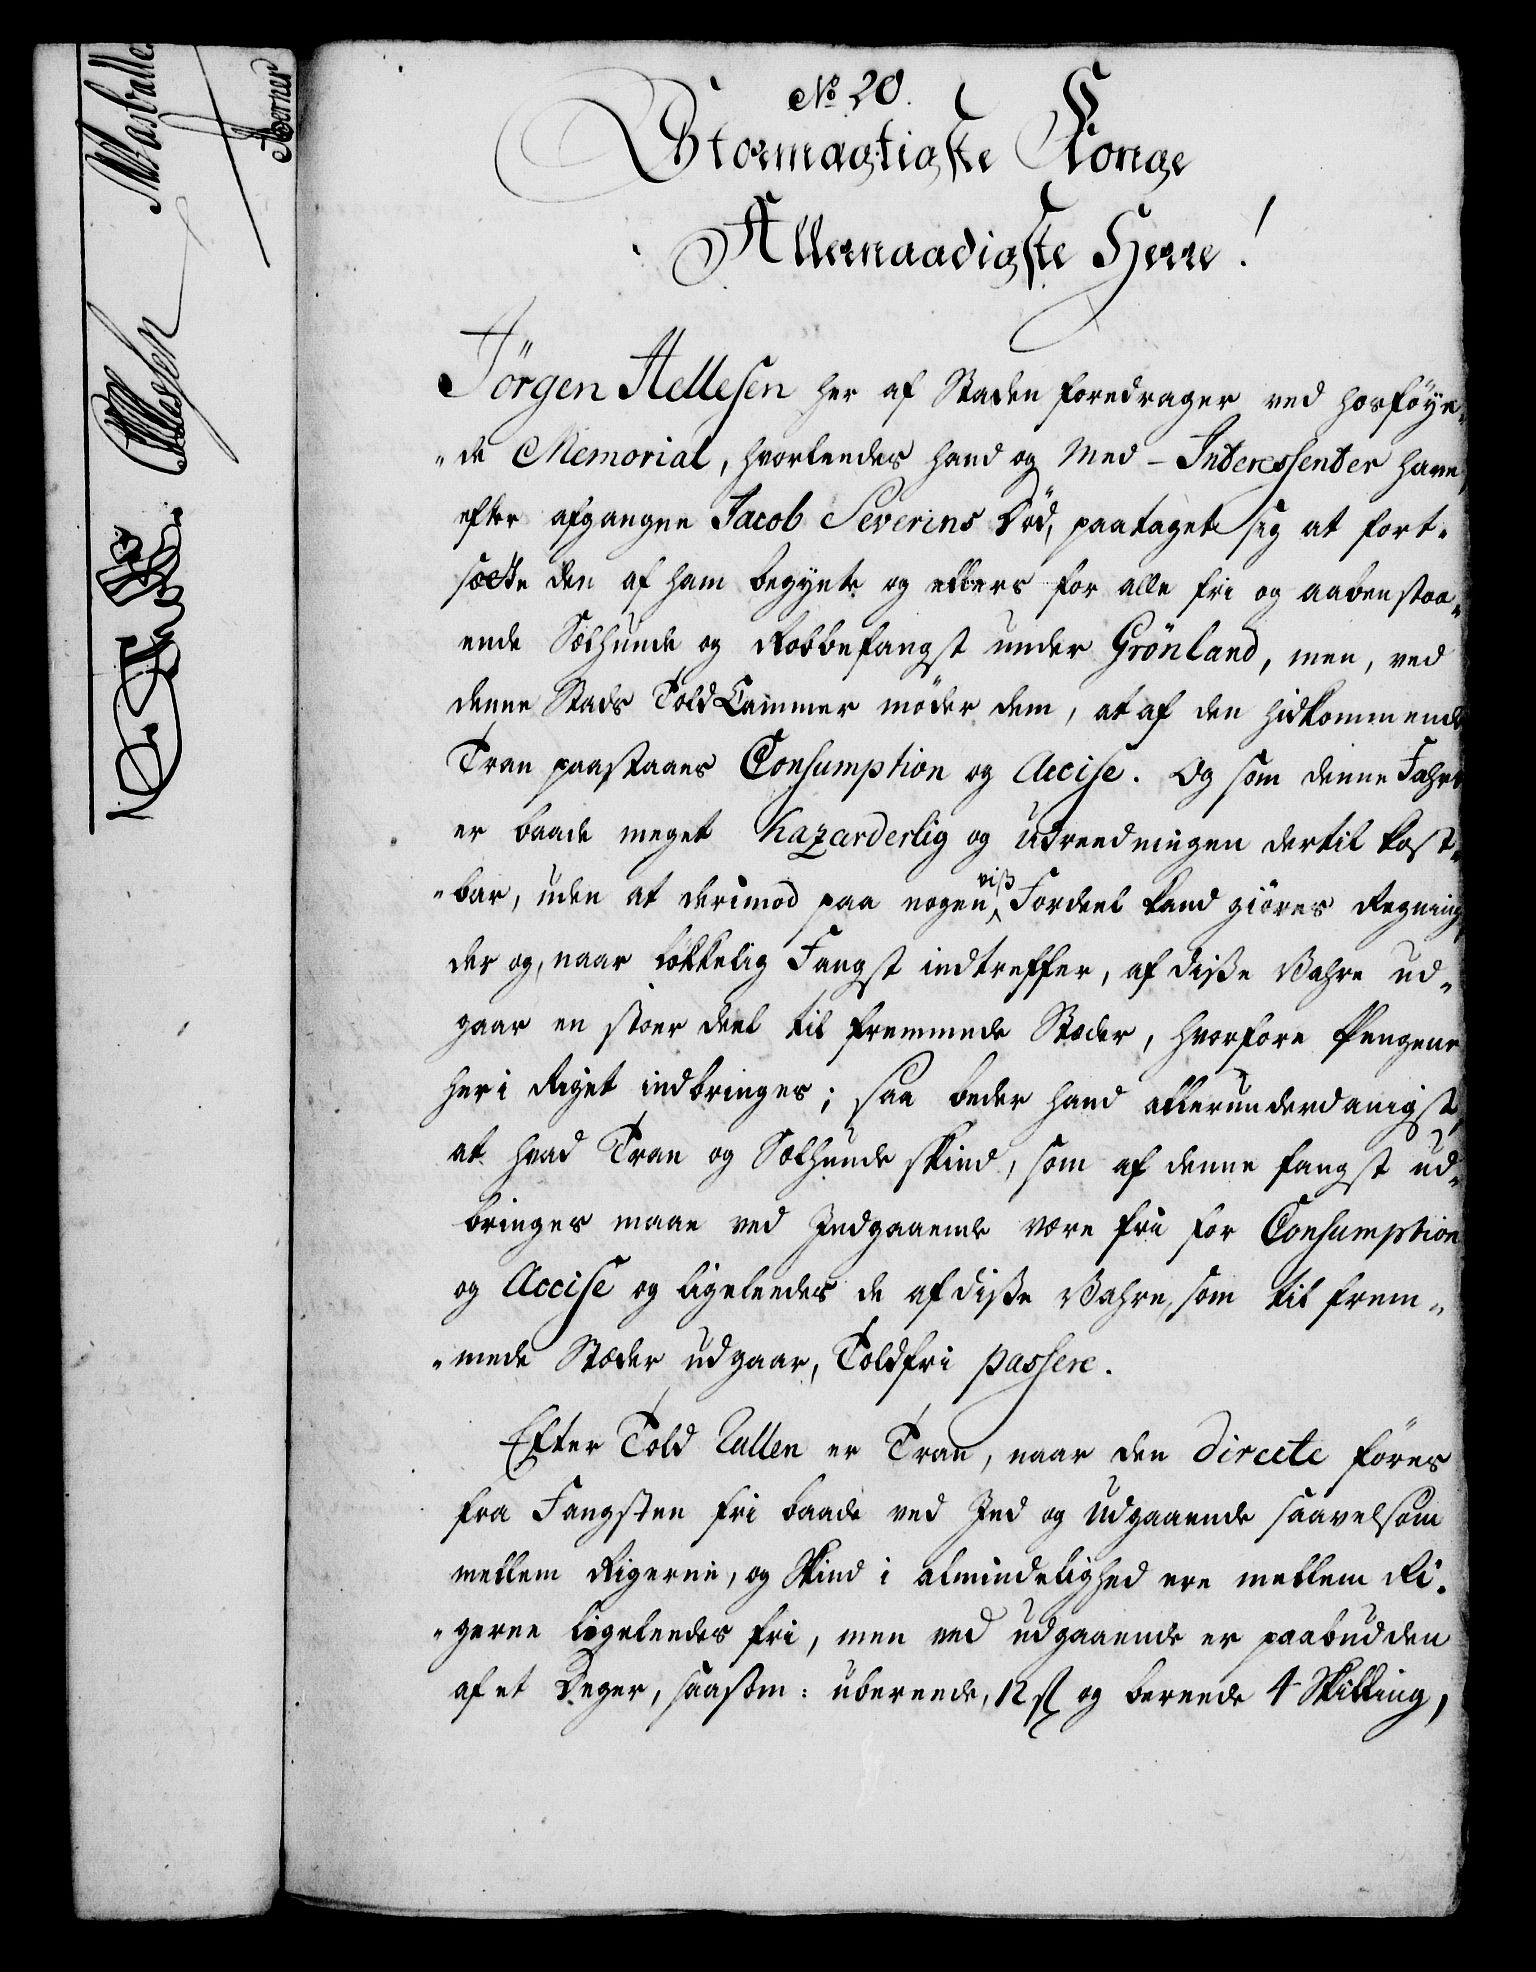 No 20.
Stormægtigste Konge
Allernaadigste Herre!
Jörgen Hellesen her af Staden foredrager ved hosföyen„
„de Memorial, hvorleedes hand og Med-Interessenter have
efter afgangne Jacob Severins Död, paataget sig at fort„
sætte den af ham begynte og ellers for alle fri og aabenstaa„
ende Sælhunde og Robbefangst under Grönland, men, ved
denne Stads ToldCammer möder dem, at af den hidkommende
Tran paastaaes Consumption og Accise. Og som denne Fahrt
er baade meget hazarderlig og Udreedningen dertil kost„
„bar, uden at derimod paa nogen viß Fordeel kand giöres Regning,
der og, naar lökkelig Fangst indtreffer, af diße Vahre ud„
gaar en stoer deel til fremmede Stæder, hvorfore Pengene
her i Riget indbringes; saa beder hand allerunderdanigst,
at hvad Tran og Sælhunde skind, som af denne fangst ud„
bringes maae ved Indgaaende være fri for Consumption
og Accise og ligeleedes de af diße Vahre, som til frem„
„mede Stæder udgaar, Toldfri passere.
Efter Told Rullen er Tran, naar den directe föres
fra Fangsten fri baade ved Ind og Udgaaende saavelsom
mellem Rigerne, og Skind i almindelighed ere mellem Ri„
„gerne ligeleedes fri, men ved udgaaende er paabudden
af et Deger, saasom: ubereede, 12 ß og bereede 4 Skilling,